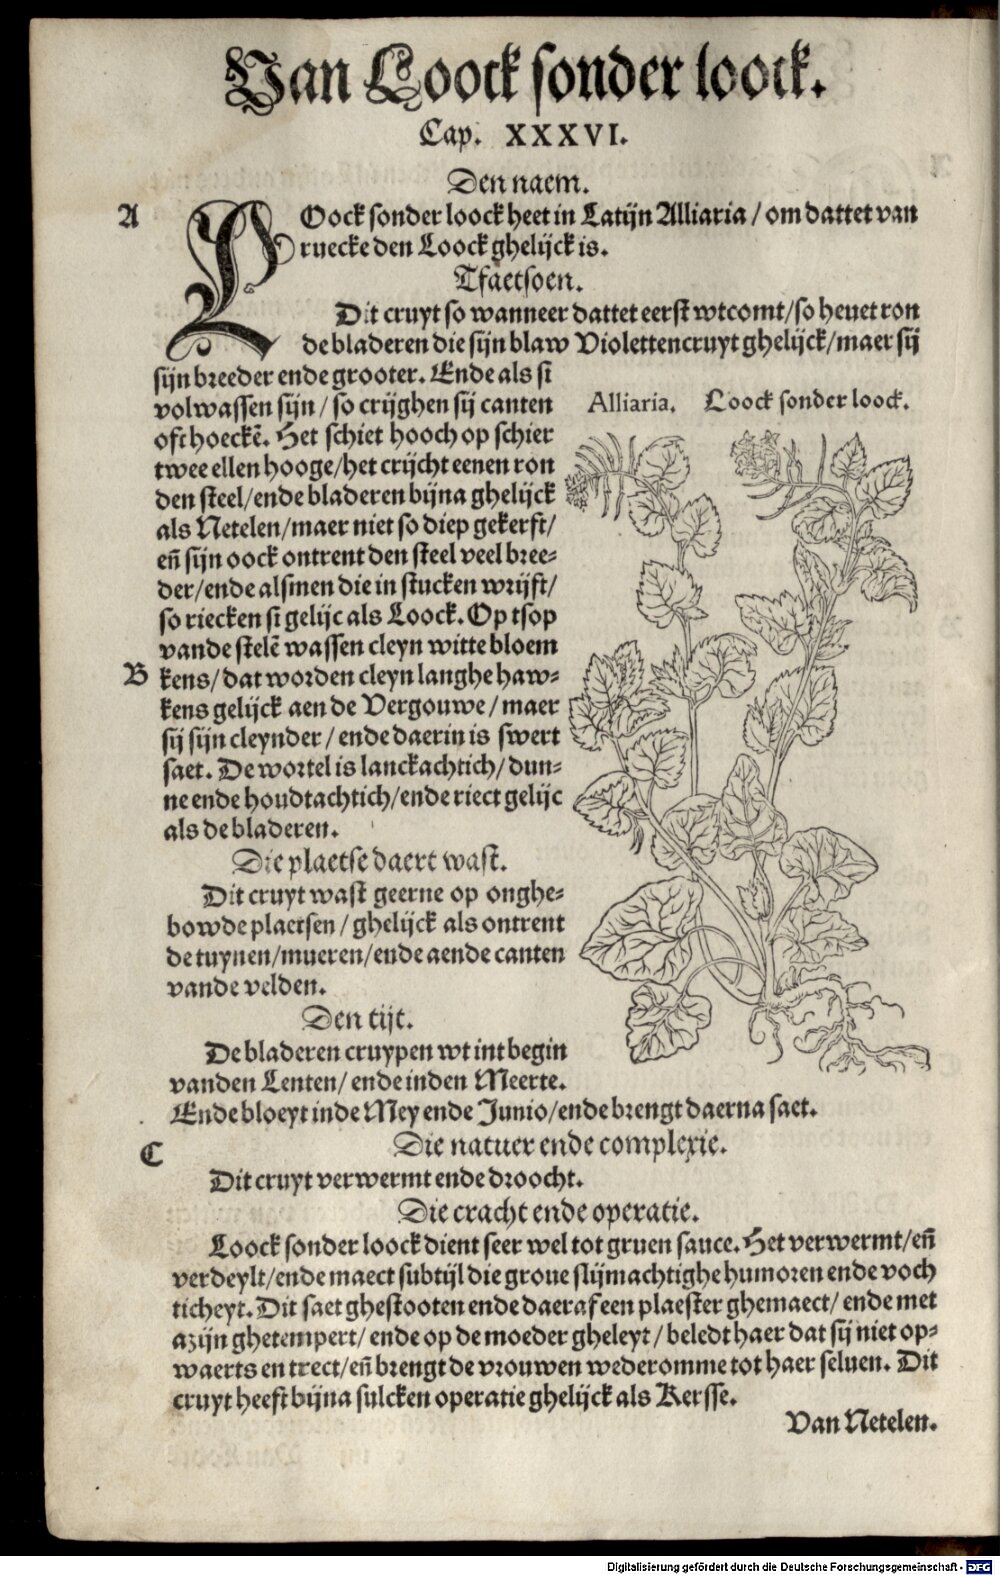 Van Loock sonder loock.
Cap. XXXVI.
Den naem.
A
LOock sonder loock heet in Latijn Alliaria / om dattet van
ruecke den Loock ghelijck is.
Tfaetsoen.
Dit cruyt so wanneer dattet eerst wtcomt/so heuet ron
de bladeren die sijn blaw Violettencruyt ghelijck/maer sij
sijn breeder ende grooter. Ende als si
volwassen sijn / so crijghen sij canten
oft hoeckē. Het schiet hooch op schier
twee ellen hooge/het crijcht eenen ron
den steel/ende bladeren bijna ghelijck
als Netelen/maer niet so diep gekerft/
eñ sijn oock ontrent den steel veel bree-
der/ende alsmen die in stucken wrijft/
so riecken si gelijc als Loock. Op tsop
vande stelē wassen cleyn witte bloem
B
kens/dat worden cleyn langhe haw-
kens gelijck aen de Vergouwe/maer
sij sijn cleynder/ende daerin is swert
saet. De wortel is lanckachtich/dun-
ne ende houdtachtich/ende riect gelijc
als de bladeren.
Alliaria. Loock sonder loock.
Die plaetse daert wast.
Dit cruyt wast geerne op onghe-
bowde plaetsen/ghelijck als ontrent
de tuynen/mueren/ende aende canten
vande velden.
Den tijt.
De bladeren cruypen wt int begin
vanden Lenten/ende inden Meerte.
Ende bloeyt inde Mey ende Junio/ende brengt daerna saet.
C
Die natuer ende complexie.
Dit cruyt verwermt ende droocht.
Die cracht ende operatie.
Loock sonder loock dient seer wel tot gruen sauce. Het verwermt/eñ
verdeylt/ende maect subtijl die groue slijmachtighe humoren ende voch
ticheyt. Dit saet ghestooten ende daeraf een plaester ghemaect/ende met
azijn ghetempert/ende op de moeder gheleyt/beledt haer dat sij niet op-
waerts en trect/eñ brengt de vrouwen wederomme tot haer seluen. Dit
cruyt heeft bijna sulcken operatie ghelijck als Kersse.
Van Netelen.
Digitalisierung gefördert durch die Deutsche Forschungsgemeinschaft - DFG